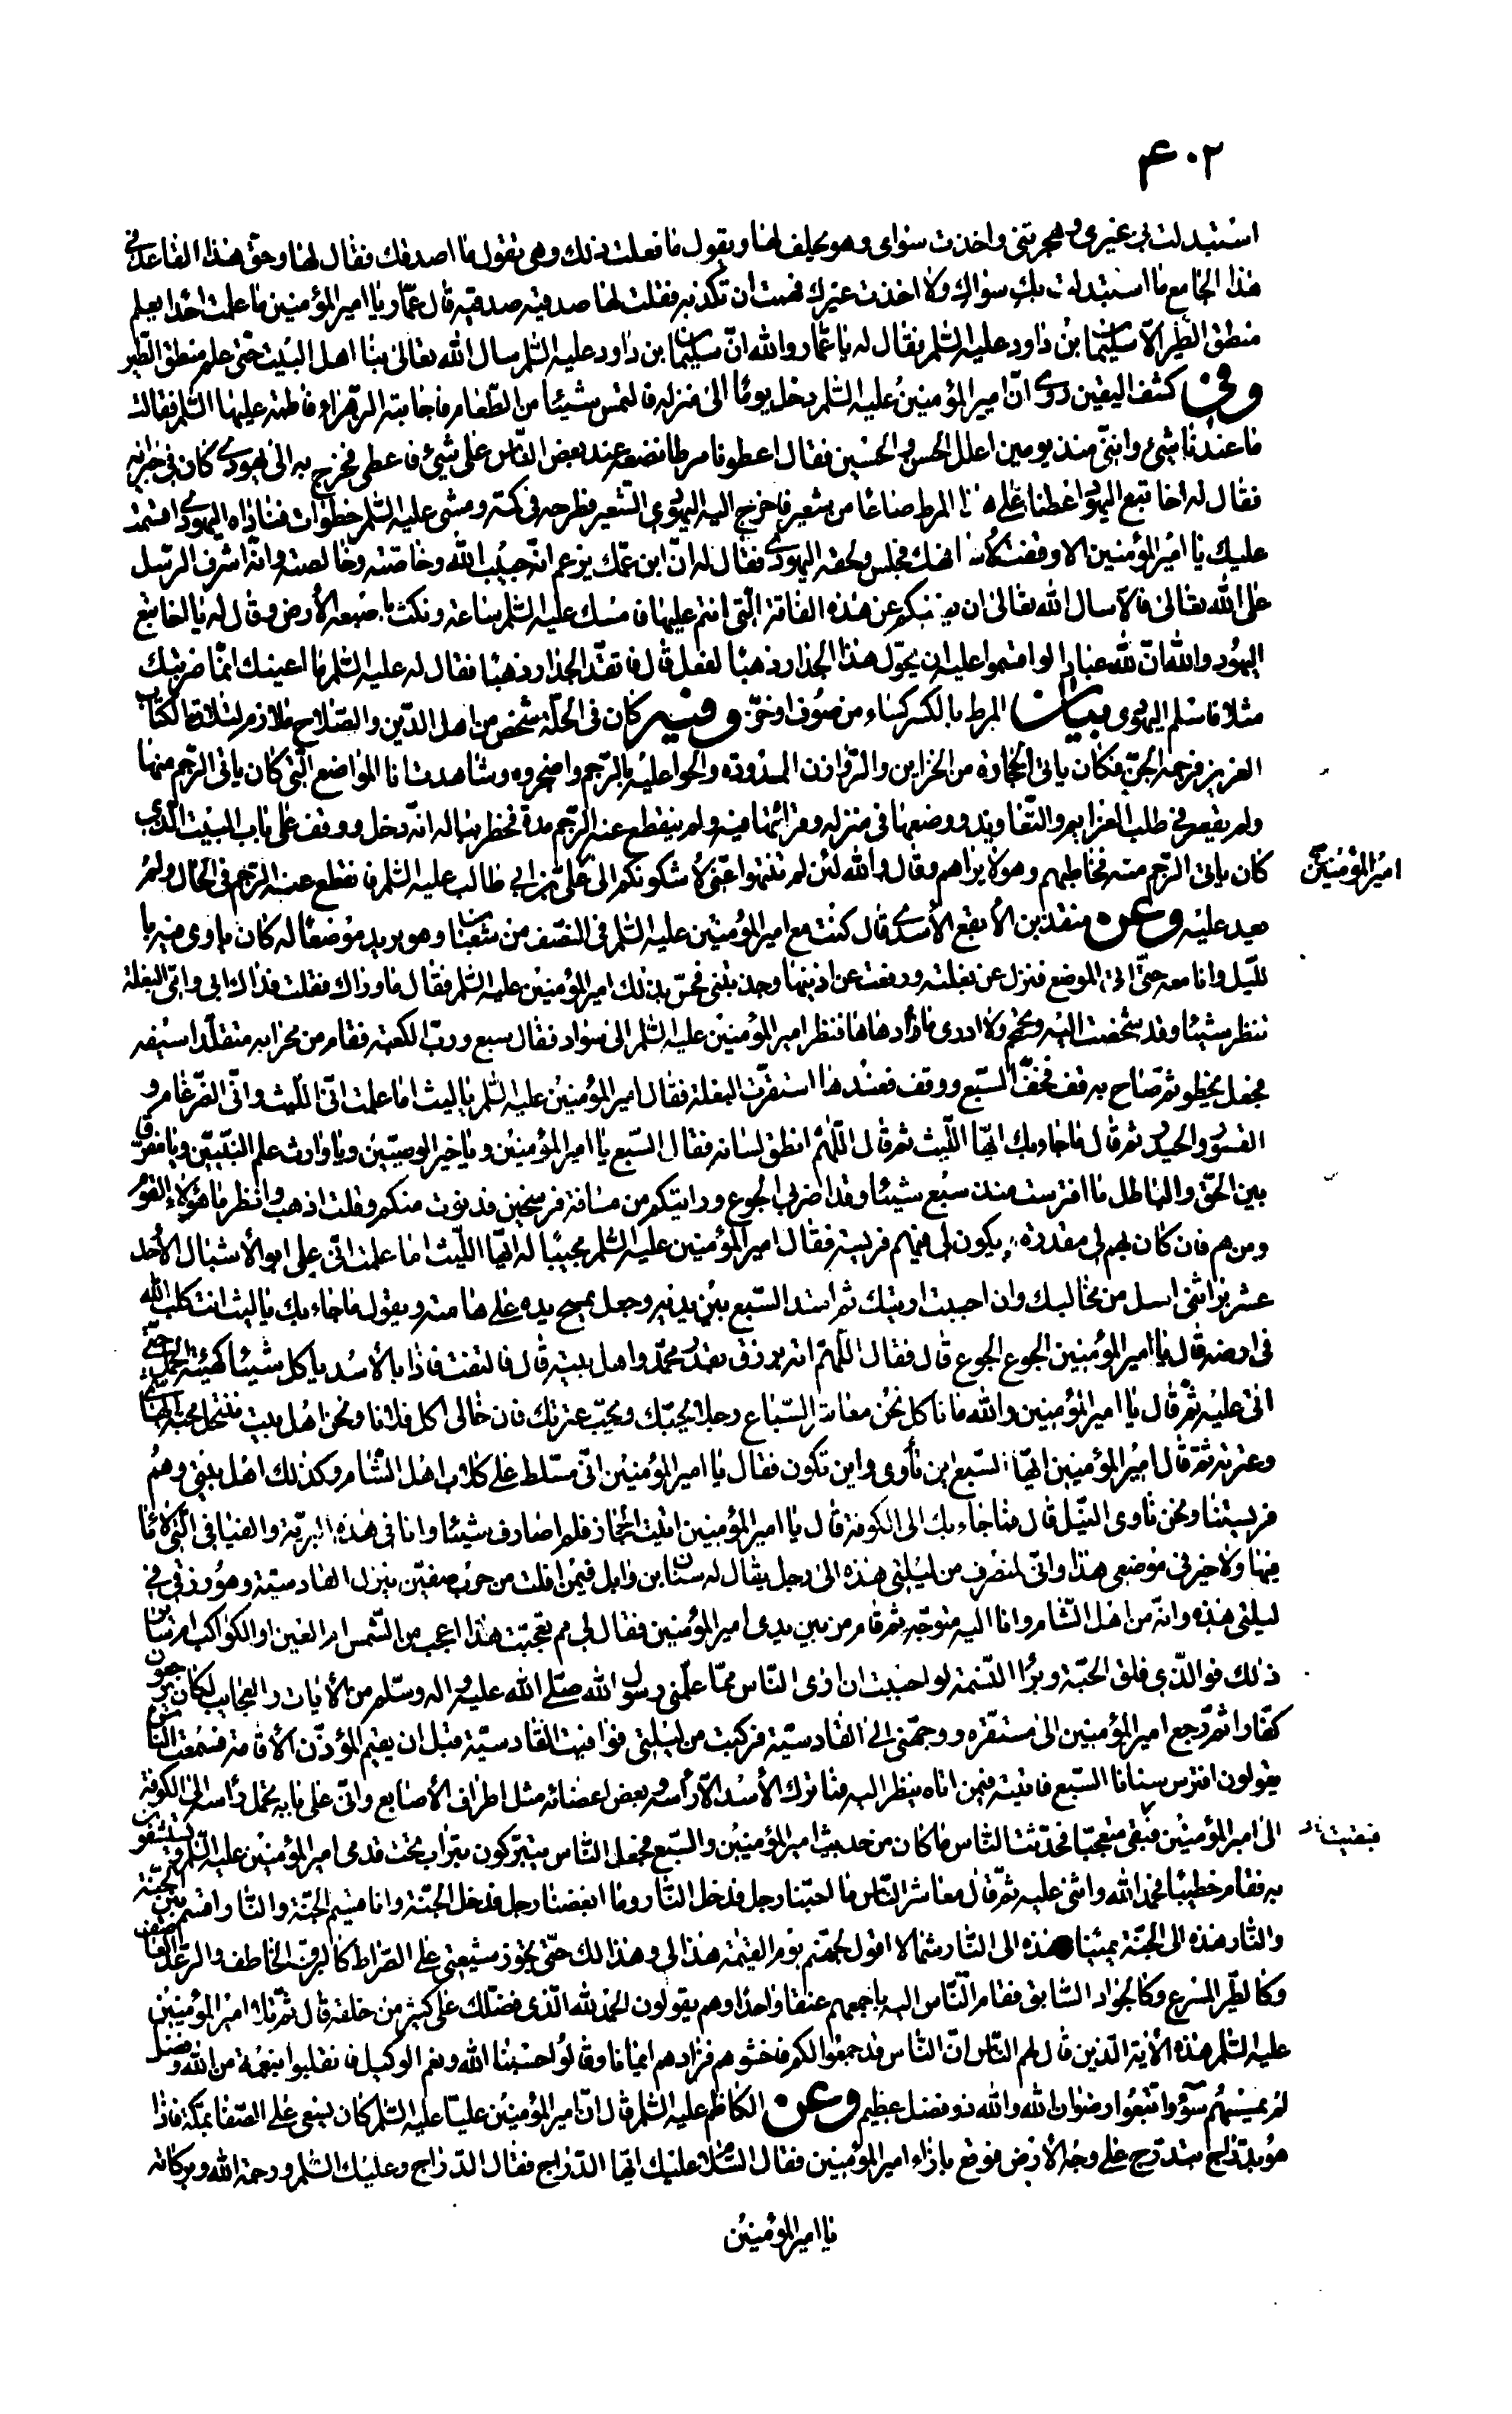 ٤٠٢
استبدلت بی غیری وهجرتنی واخذت سوای وهو یحلف لها ویقول ما فعلت ذلك وهی تقول ما اصدقك فقال لها وحق هذا القاعد فی
هذا الجامع ما استبدلت بك سواك ولا اخذت غیرك فهمت ان تكذبه فقلت لها صدقیه صدقیه قال عمار یا امیر المؤمنین ما علمت احدا یعلم
منطق الطیر الا سلیمان بن داود علیه السلم فقال له یا عمار والله ان سلیمان بن داود علیه السلم سال الله تعالی بنا اهل البیت حتی علم منطق الطیر
وفی كشف الیقین روی ان امیر المؤمنین علیه السلم دخل یوما الی منزله فالتمس شیئا من الطعام فاجابته الزهراء فاطمة علیها السلم فقالت
ما عندنا شیء واننی منذ یومین اعلل الحسن والحسین فقال اعطونا مرطا نضعه عند بعض الناس علی شیء فاعطی فخرج به الی یهودی كان فی جیرانه
فقال له اخا تبع الیهود اعطنا علی هذا المرط صاعا من شعیر فاخرج الیه الیهودی الشعیر فطرحه فی كمه ومشی علیه السلم خطوات فناداه الیهودی اقسمت
علیك یا امیر المؤمنین الا وقفت لاشافهك فجلس ولحقه الیهودی فقال له ان ابن عمك یزعم انه حبیب الله وخاصته وخالصته وانه اشرف الرسل
علی الله تعالی فالا سال الله تعالی ان یغنیكم عن هذه الفاقة التی انتم علیها فامسك علیه السلم ساعة ونكث باصبعه الأرض وقال له یا اخا تبع
الیهود والله ان لله عبادا لو اقسموا علیه ان یحول هذا الجدار ذهبا لفعل قال فاتقد الجدار ذهبا فقال له علیه السلم ما اعنیك انما ضربتك
مثلا فاسلم الیهودی بیان المرط بالكسر كساء من صوف او خز وفیه كان فی الحلة شخص من اهل الدین والصلاح ملازم لتلاوة الكتاب
العزیز فرجمه الجن فكان یاتی الحجارة من الخزاین والروازن المسدودة والحوا علیه بالرجم واضجروه وشاهدت انا المواضع التی كان یاتی الرجم منها
ولم یقصر فی طلب العزایم والتعاویذ ووضعها فی منزله وقرائتها فیه ولم ینقطع عنه الرجم مدة فخطر بباله انه دخل ووقف علی باب البیت الذی
كان یاتی الرجم منه فخاطبهم وهو لا یراهم وقال والله لئن لم تنتهوا عنی لاشكونكم الی علی بن ابی طالب علیه السلم فانقطع عنه الرجم فی الحال ولم
امیر المؤمنین
یعد علیه وعن منقذ بن الأبقع الأسدی قال كنت مع امیر المؤمنین علیه السلم فی النصف من شعبان وهو یرید موضعا له كان یاوی فیه با
للیل وانا معه حتی اتی الموضع فنزل عن بغلته ورفعت عن اذنیها وجذبتنی فحس بذلك امیر المؤمنین علیه السلم فقال ما وراك فقلت فداك ابی وامی البغلة
تنظر شیئا وقد شخصت الیه وتحمحم ولا ادری ماذا دهاها فنظر امیر المؤمنین علیه السلم الی سواد فقال سبع ورب الكعبة فقام من محرابه متقلدا سیفه
فجعل یخطو ثم صاح به قف فخف السبع ووقف فعندها استقرت البغلة فقال امیر المؤمنین علیه السلم یا لیث اما علمت انی اللیث وانی الضرغام و
القسور والحیدر ثم قال ما جاء بك ایها اللیث ثم قال اللهم انطق لسانه فقال السبع یا امیر المؤمنین ویا خیر الوصیین ویا وارث علم النبیین ویا مفرق
بین الحق والباطل ما افترست منذ سبع شیئا وقد اضر بی الجوع ورایتكم من مسافة فرسخین فدنوت منكم وقلت اذهب وانظر ما هؤلاء القوم
ومن هم فان كان بهم لی مقدرة یكون لی فیهم فریسة فقال امیر المؤمنین علیه السلم مجیبا له ایها اللیث اما علمت انی علی ابو الأشبال الأحد
عشر براثنی امثل من مخالبك وان احببت اریتك ثم امتد السبع بین یدیه وجعل یمسح یده علی هامته ویقول ما جاء بك یا لیث انت كلب الله
فی ارضه قال یا امیر المؤمنین الجوع الجوع قال فقال اللهم اته برزق بقدر محمد واهل بیته قال فالتفت فاذا بالأسد یاكل شیئا كهیئة الجمل حتی
اتی علیه ثم قال یا امیر المؤمنین والله ما ناكل نحن معاشر السباع رجلا یحبك ویحب عترتك فان خالی اكل فلانا ونحن اهل بیت ننتحل محبة الهاشمی
وعترته ثم قال امیر المؤمنین ایها السبع این تأوی واین تكون فقال یا امیر المؤمنین انی مسلط علی كلاب اهل الشام وكذلك اهل بیتی وهم
فریستنا ونحن ناوی النیل قال فما جاء بك الی الكوفة قال یا امیر المؤمنین اتیت الحجاز فلم اصادف شیئا وانا فی هذه البریة والفیافی التی لا ماء
فیها ولا خیر فی موضعی هذا وانی لمنصرف من لیلتی هذه الی رجل یقال له سنان بن وابل فیمن افلت من حرب صفین ینزل القادسیة وهو رزقی فی
لیلتی هذه وانه من اهل الشام وانا الیه متوجه ثم قام من بین یدی امیر المؤمنین فقال لی مم تعجبت هذا اعجب من الشمس ام العین او الكواكب ام سائر
ذلك فوالذی فلق الحبة وبرأ النسمة لو احببت ان اری الناس مما علمنی رسول الله صلی الله علیه واله وسلم من الأیات والعجایب لكان یرجعون
كفارا ثم رجع امیر المؤمنین الی مستقره ووجهنی الی القادسیة فركبت من لیلتی فوافیت القادسیة قبل ان یقیم المؤذن الأقامة فسمعت الناس
یقولون افترس سنانا السبع فاتیته فیمن اتاه ینظر الیه فما ترك الأسد الا رأسه وبعض اعضائه مثل اطراف الأصابع واتی علی باقیه فحمل رأسه الی الكوفة
الی امیر المؤمنین فبقی متعجبا فحدثت الناس ما كان من حدیث امیر المؤمنین والسبع فجعل الناس یتبركون بتراب تحت قدمی امیر المؤمنین علیه السلم ویستشفون
فبقیت
به فقام خطیبا فحمد الله واثنی علیه ثم قال معاشر الناس ما احبنا رجل فدخل النار وما ابغضنا رجل فدخل الجنة وانا قسیم الجنة والنار اقسم بین الجنة
والنار هذه الی الجنة یمینا وهذه الی النار شمالا اقول لجهنم یوم القیمة هذا لی وهذا لك حتی تجوز شیعتی علی الصراط كالبرق الخاطف والرعد العاصف
وكالطیر المسرع وكالجواد السابق فقام الناس الیه باجمعهم عنقا واحدا وهم یقولون الحمد لله الذی فضلك علی كثیر من خلقه قال ثم تلا امیر المؤمنین
علیه السلم هذه الأیة الذین قال لهم الناس ان الناس قد جمعوا لكم فاخشوهم فزادهم ایمانا وقالوا حسبنا الله ونعم الوكیل فانقلبوا بنعمة من الله وفضل
لم یمسسهم سوء واتبعوا رضوان الله والله ذو فضل عظیم وعن الكاظم علیه السلم قال ان امیر المؤمنین علیا علیه السلم كان یسعی علی الصفا بمكة فاذا
هو بدراج یتدرج علی وجه الأرض فوقع بازاء امیر المؤمنین فقال السلام علیك ایها الدراج فقال الدراج وعلیك السلم ورحمة الله وبركاته
یا امیر المؤمنین